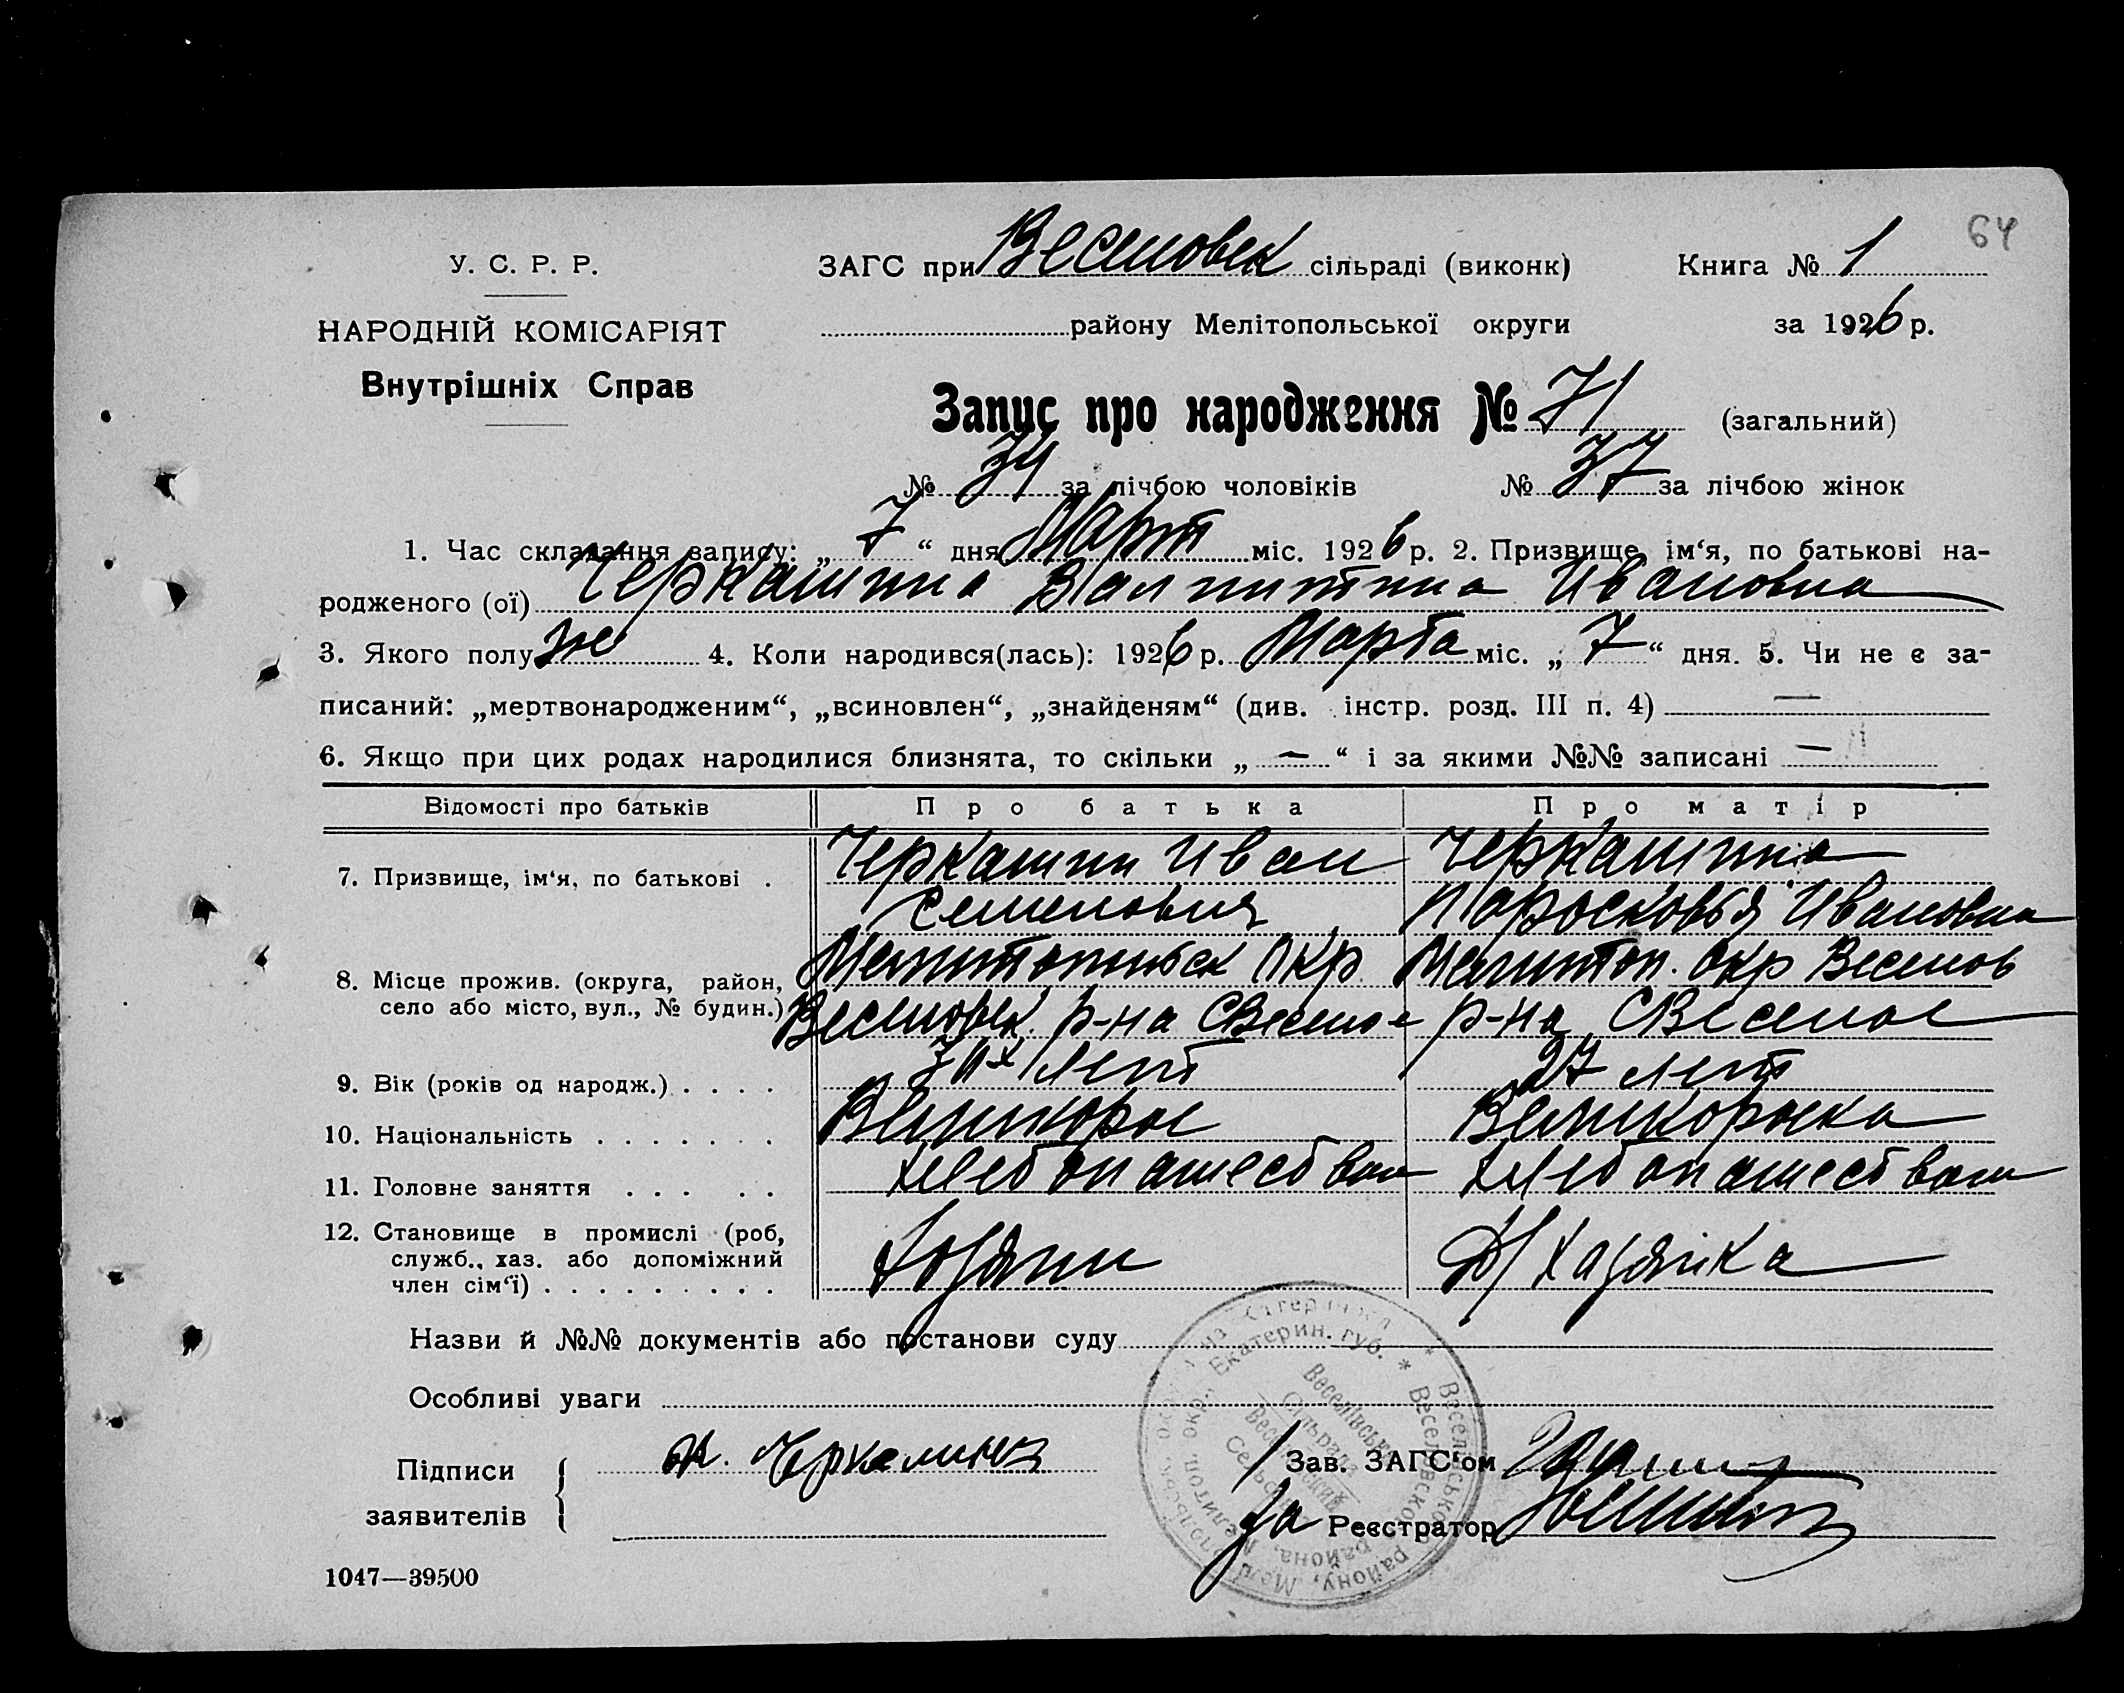 64
У. С. Р. Р.
НАРОДНІЙ КОМІСАРІЯТ
Внутрішніх Справ
ЗАГС при Веселовск сільраді (виконк) Книга № 1
району Мелітопольської округи за 1926 р.
Запис про народження № 71 (загальний)
№ 34 за лічбою чоловіків № 37 за лічбою жінок
1. Час складання запису: „ 7 “ дня Март міс. 1926 р. 2. Призвище, ім‘я, по батькові на-
родженого (ої) Черкашина Валинтина Ивановна
3. Якого полу же 4. Коли народився(лась): 1926 р. Марта міс. „ 7 “ дня. 5. Чи не є за-
писаний: „мертвонародженим“, „всиновлен“, „знайденям“ (див. інстр. розд. III п. 4) —
6. Якщо при цих родах народилися близнята, то скільки „ — “ і за якими №№ записані —
Відомості про батьків Про батька Про матір
7. Призвище, ім‘я, по батькові . Черкашин Иван Черкашина
Семенович Паросковья Ивановна
8. Місце прожив. (округа, район, Мелитопольск Окр. Мелитоп. Окр Веселов
село або місто, вул., № будин.) Веселовск. р-на СВеселое р-на СВеселое
9. Вік (років од народж.) . . . . лет 27 лет
10. Національність . . . . . . . Великорос Великороска
11. Головне заняття . . . . . Хлебопашеством Хлебопашеством
12. Становище в промислі (роб,
служб., хаз. або допоміжний Хозяин Д/хазяйка
член сім‘ї) . . . . . . . . .
Назви й №№ документів або постанови суду
Особливі уваги
Підписи
заявителів
Черкашин
Зав. ЗАГС‘ом
За Реєстратор
Екатерин. губ. * Веселовского района, Мелитоп. окр.,
Веселівська
Сільрада
1047—39500